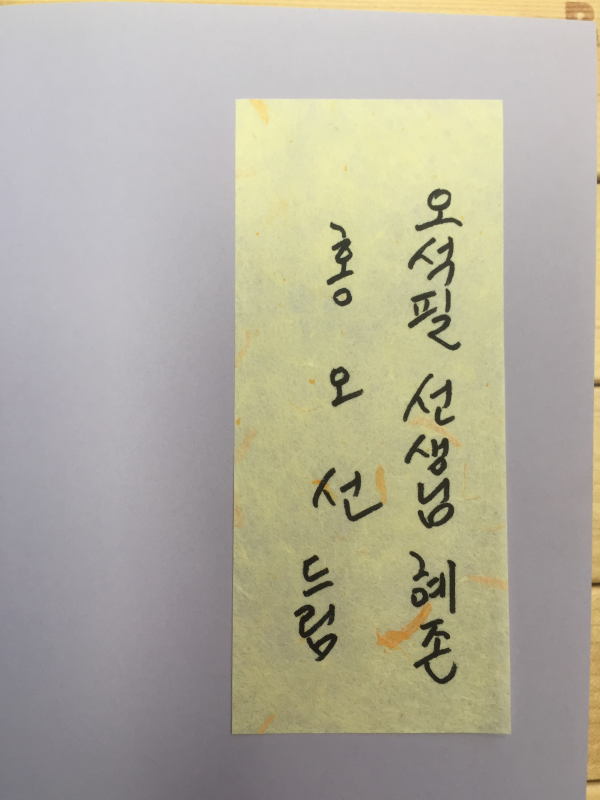 오석필 선생님 혜존
홍오선 드림